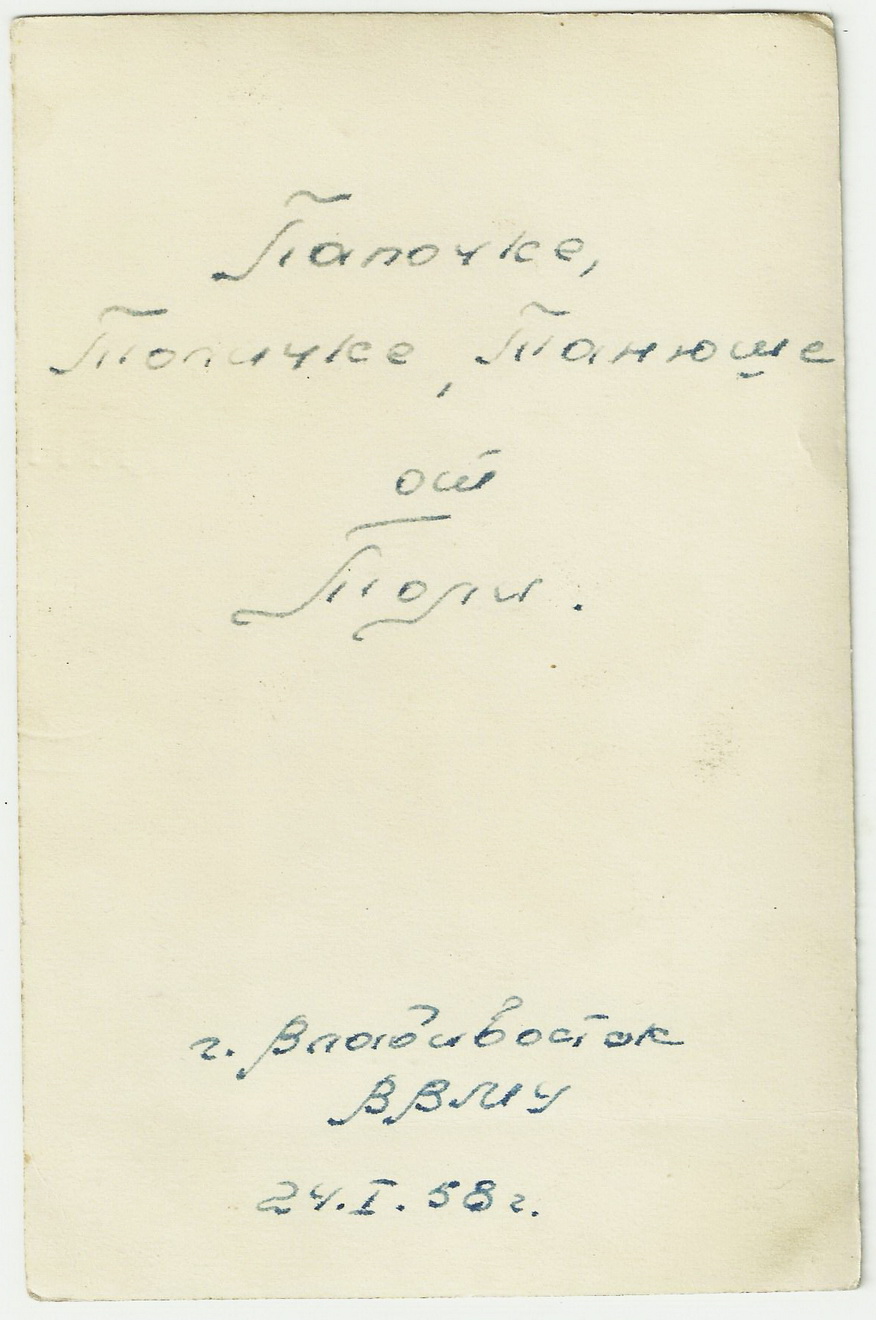 Папочке,
Толичке, Танюше
от
Толи.
г. Владивосток
ВВМУ
24.I.58г.